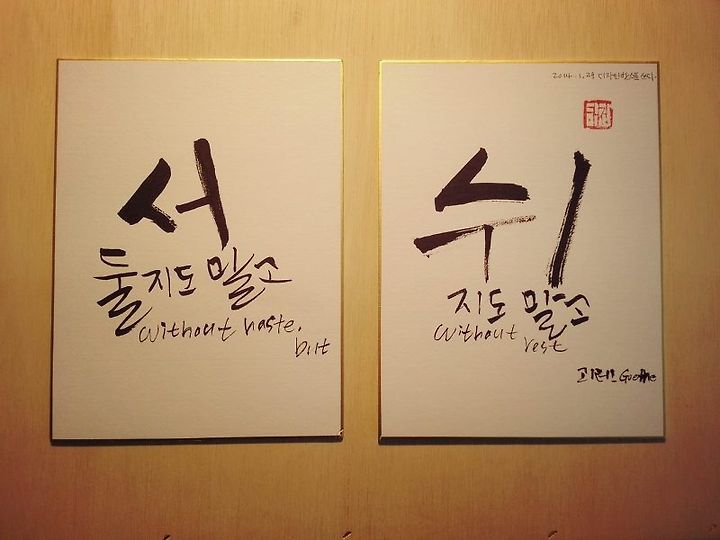 서
둘지도 말고
Without haste.
but
2014. 1. 29
쉬
지도 말고
Without
rest
괴테 Goethe